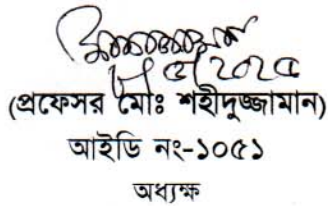 (প্রফেসর মোঃ শহীদুজ্জামান)
আইডি নং-১০৫১
অধ্যক্ষ